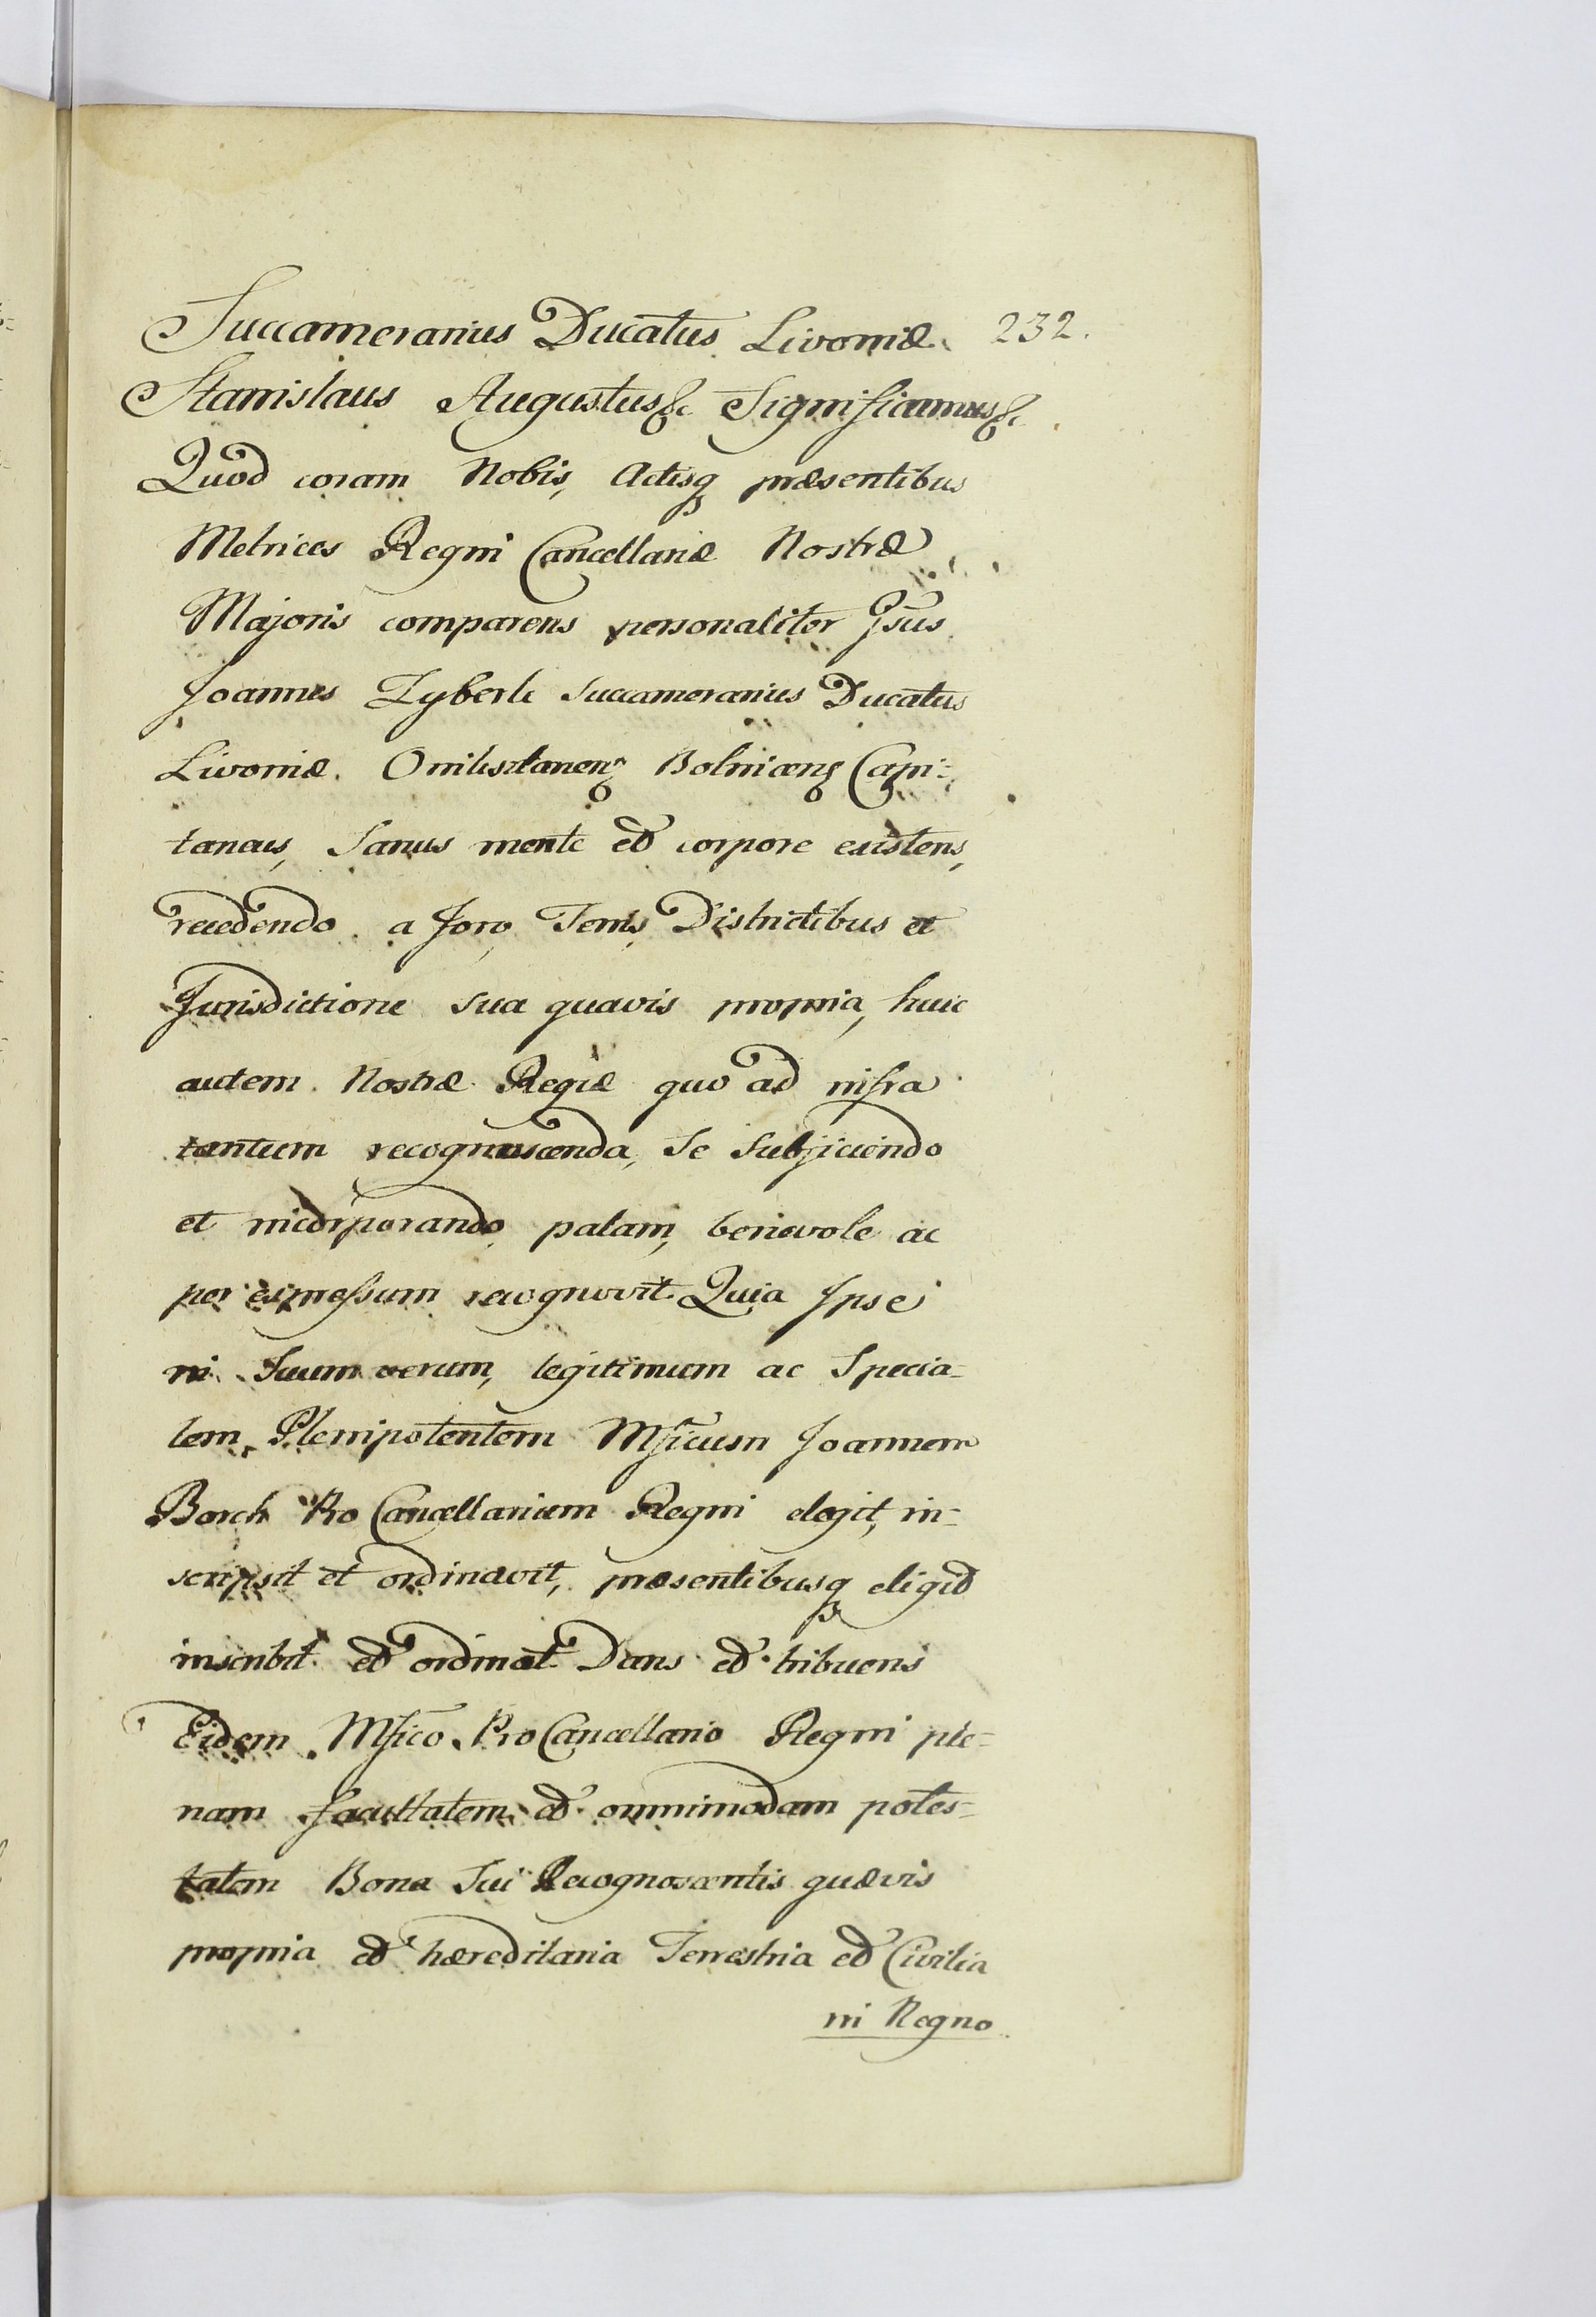 Succamerarius Ducatus Livoniæ. 232.
Stanislaus Augustus &c Significamus &c
Quod coram Nobis, Actisq præsentibus
Metrices Regni Cancellariæ Nostræ
Majoris comparens personaliter Gsus
Joannes Zyberk Succamerarius Ducatus
Livoniæ. Capi-
taneus, Sanus mente et corpore existens,
recedendo a foro, Terris, Districtibus et
Jurisdictione sua quavis propria, huic
autem Nostræ Regiæ quo ad infra
tantum recognoscenda, Se Subjiciendo
et incorporando, palam, benevole ac
per expressum recognovit. Quia Ipse
in Suum verum, legitimum ac Specia-
lem Plenipotentem Mficum Joannem
Borch Pro Cancellarium Regni elegit, in-
scripsit et ordinavit, præsentibusq eligit
inscribit et ordinat. Dans et tribuens
Eidem Mfico Pro Cancellario Regni ple-
nam facultatem et omnimodam potes-
tatem Bona Sui Recognoscentis quævis
propria et hæreditaria Terrestria et Civilia
in Regno